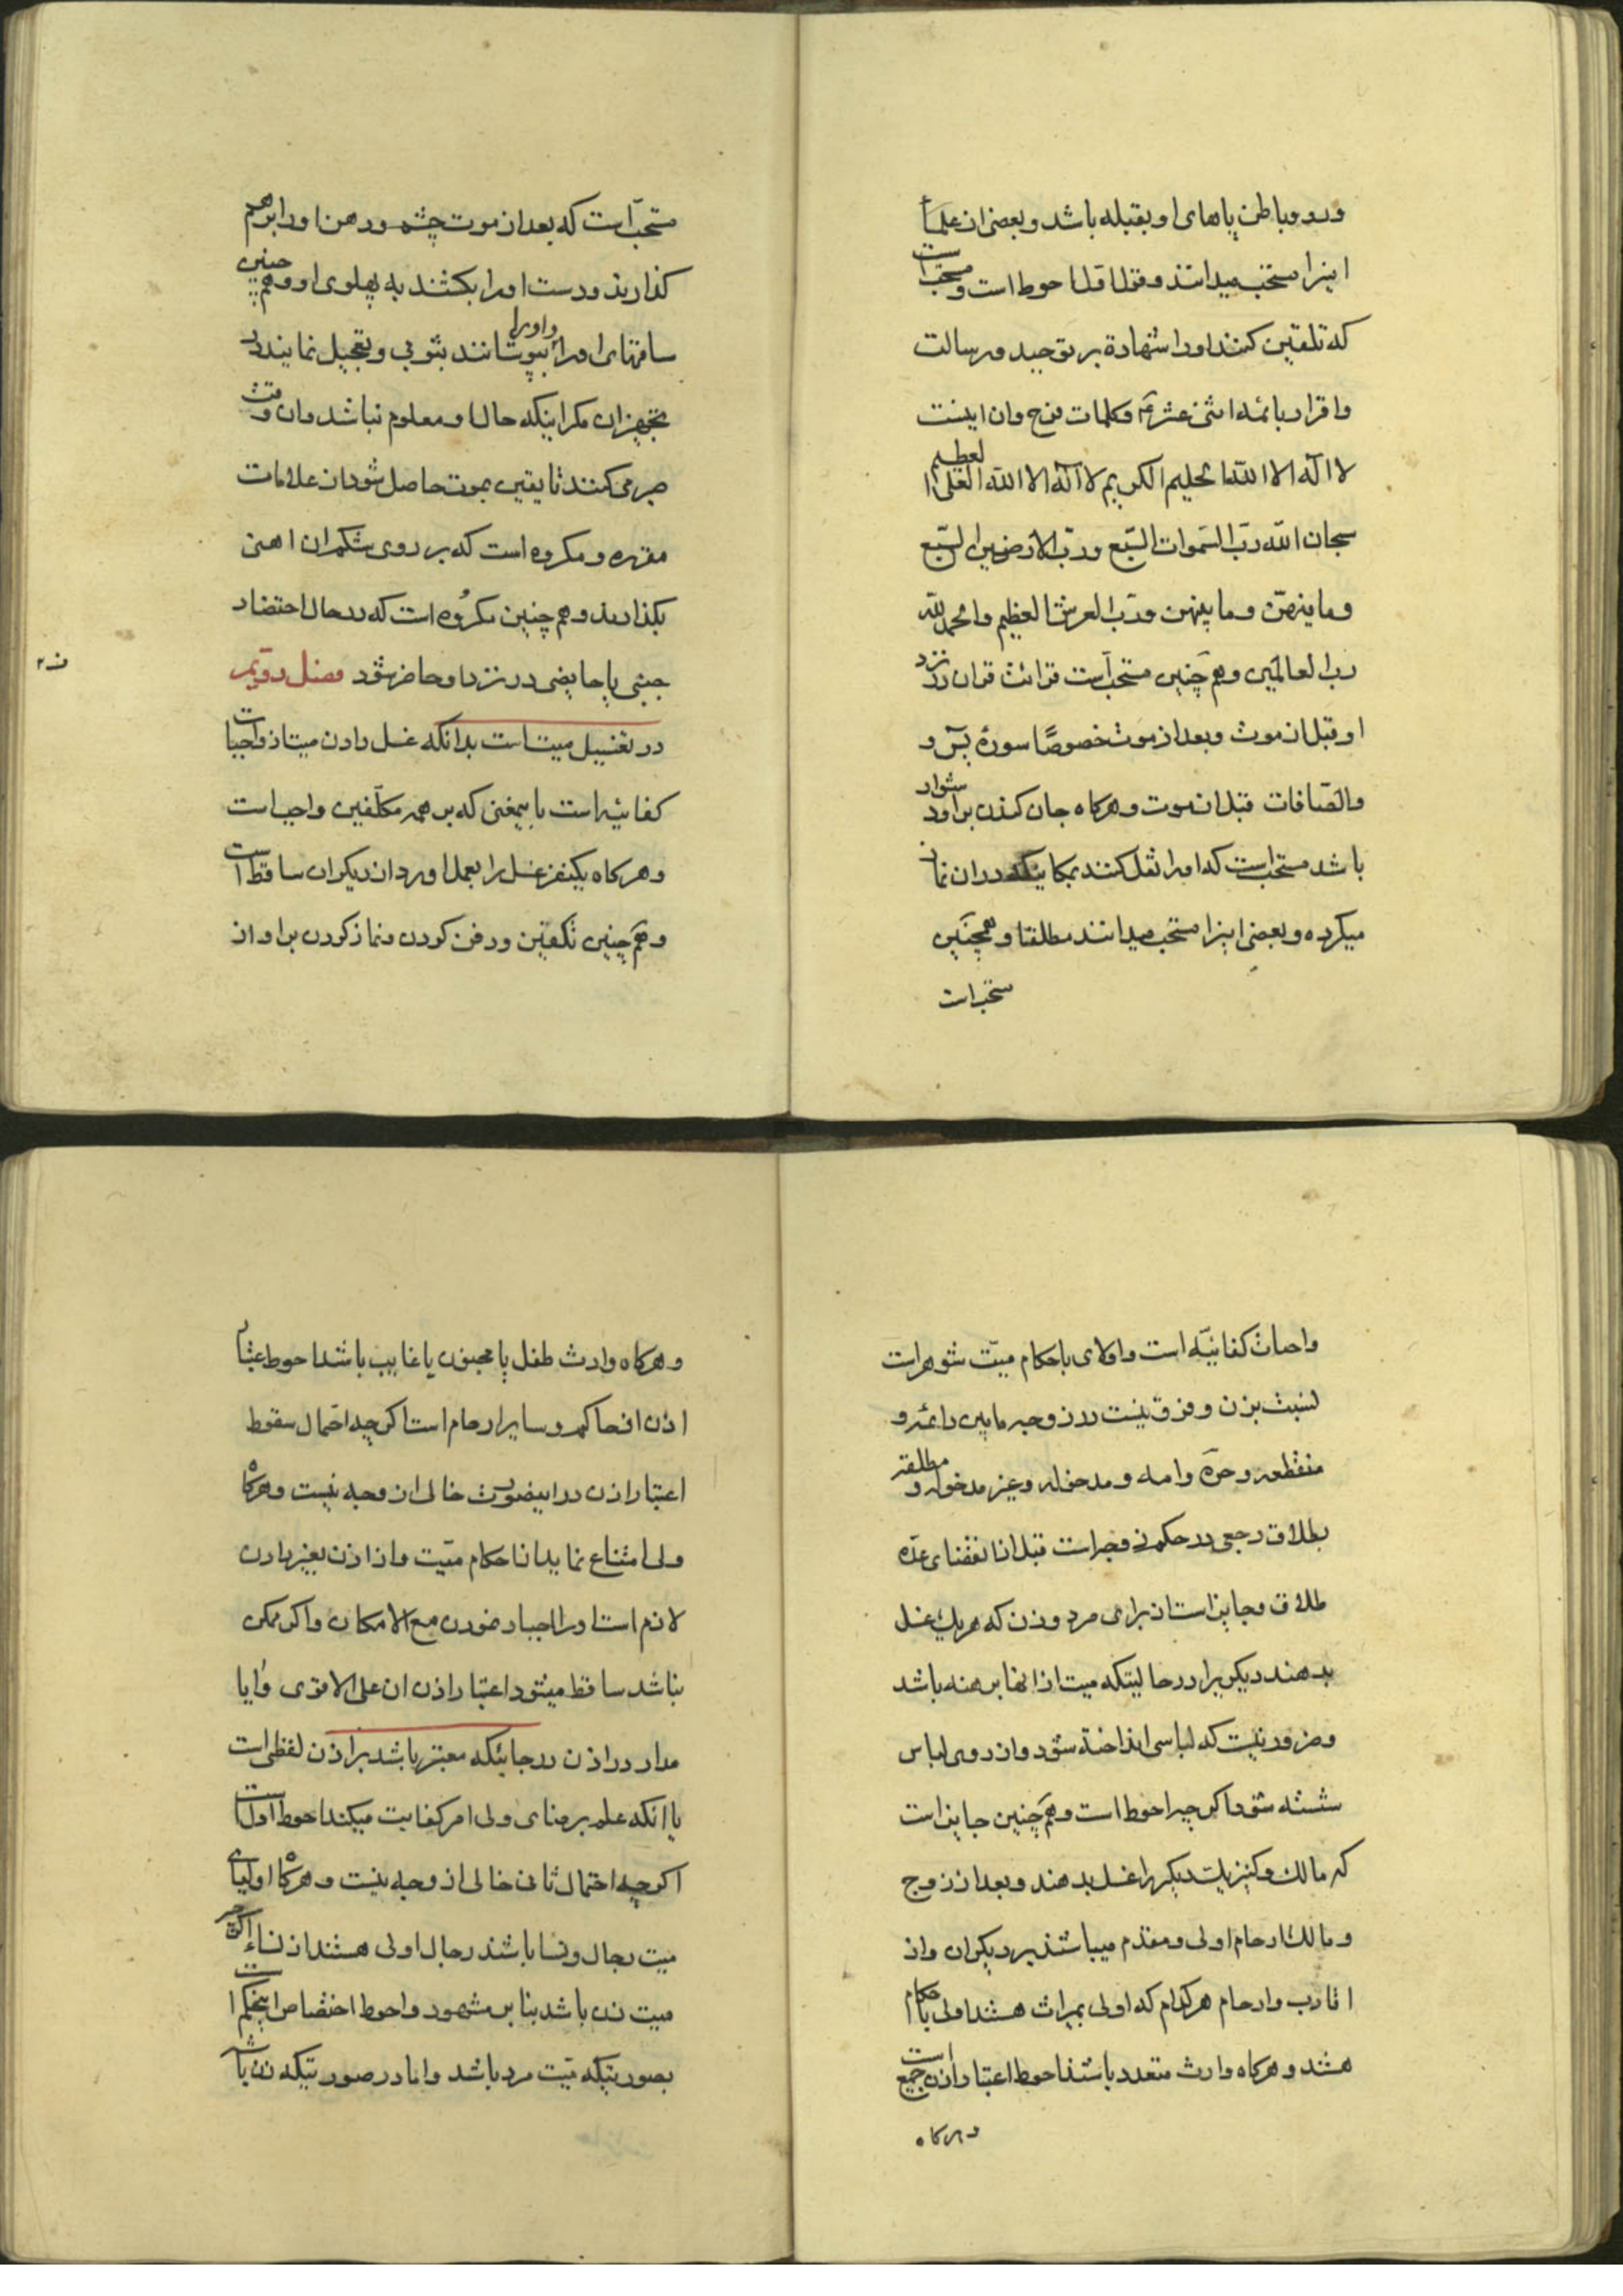 و رو و باطن پاهای او بقبله باشد و بعضی از علما
اینرا مستحب میدانند و قول اول احوط است و مستحب است
که تلقین کنند او را شهادة بر توحید و رسالت
و اقرار بائمه اثنی عشر و کلمات فرج و ان اینست
لا اله الا الله الحلیم الکریم لا اله الا الله العلی العظیم
سبحان الله رب السموات السبع و رب الارضین السبع
و ما فیهن و ما بینهن و رب العرش العظیم و الحمد لله
رب العالمین و هم چنین مستحب است قرائت قران در نزد
او قبل از موت و بعد از موت خصوصًا سورهٔ یس و
والصافات قبل از موت و هرکاه جان کندن بر او دشوار
باشد مستحب است که او را نقل کنند بمکانیکه در ان نماز
میکرده و بعضی اینرا مستحب میدانند مطلقا و همچنین
مستحب است
مستحب است که بعد از موت چشم و دهن او را برهم
کذارند و دست او را بکشند به پهلوی او و هم چنین
ساقهای او را و او را بپوشانند بثوبی و تعجیل نمایند در
تجهیز ان مکر اینکه حال او معلوم نباشد و ان وقت
صبر می کنند تا یقین بموت حاصل شود از علامات
مقرره و مکروه است که بر روی شکم ان اهنی
بکذارند و هم چنین مکروه است که در حال احتضار
جنبی یا حایضی در نزد او حاضر شود فصل دویم
در تغسیل میت است بدانکه غسل دادن میت از واجبات
کفائیه است باینمعنی که بر همه مکلفین واجب است
و هرکاه یکنفر غسل را بعمل اورد از دیکران ساقط است
و هم چنین تکفین و دفن کردن و نماز کردن بر او از
واجبات کفائیه است و اولای باحکام میت شوهر است
نسبت بزن و فرق نیست در زوجه مابین دائمه و
منقطعه و حره و امه و مدخوله و غیر مدخوله و مطلقه
بطلاق رجعی در حکم زوجه است قبل از انقضای عده
طلاق و جایز است از برای مرد و زن که هر یک غسل
بدهند دیکریرا در حالیتکه میت از انها برهنه باشد
و ضرور نیست که لباسی انداخته شود و از روی لباس
شسته شود اکرچه احوط است و هم چنین جایز است
که مالک و کنیز یکدیکر را غسل بدهند و بعد از زوج
و مالک ارحام اولی و مقدم میباشند بر دیکران و از
اقارب و ارحام هرکدام که اولی بمیراث هستند اولی باحکام
هستند و هرکاه وارث متعدد باشند احوط اعتبار اذن جمیع است
و هرکاه
و هرکاه وارث طفل یا مجنون یا غایب باشد احوط اعتبار
اذن از حاکم و سایر ارحام است اکرچه احتمال سقوط
اعتبار اذن در اینصورت خالی از وجه نیست و هرکاه
ولی امتناع نماید از احکام میت و از اذن بغیر دادن
لازم است او را اجبار نمودن مع الامکان و اکر ممکن
نباشد ساقط میشود اعتبار اذن ان علی الاقوی و ایا
مدار در اذن در جائیکه معتبر باشد بر اذن لفظی است
یا انکه علم برضای ولی امر کفایت میکند احوط اول است
اکرچه احتمال ثانی خالی از وجه نیست و هرکاه اولیای
میت رجال و نسا باشند رجال اولی هستند از نساء اکرچه
میت زن باشد بنا بر مشهور و احوط اختصاص اینحکم است
بصورتیکه میت مرد باشد و اما در صورتیکه زن باشد